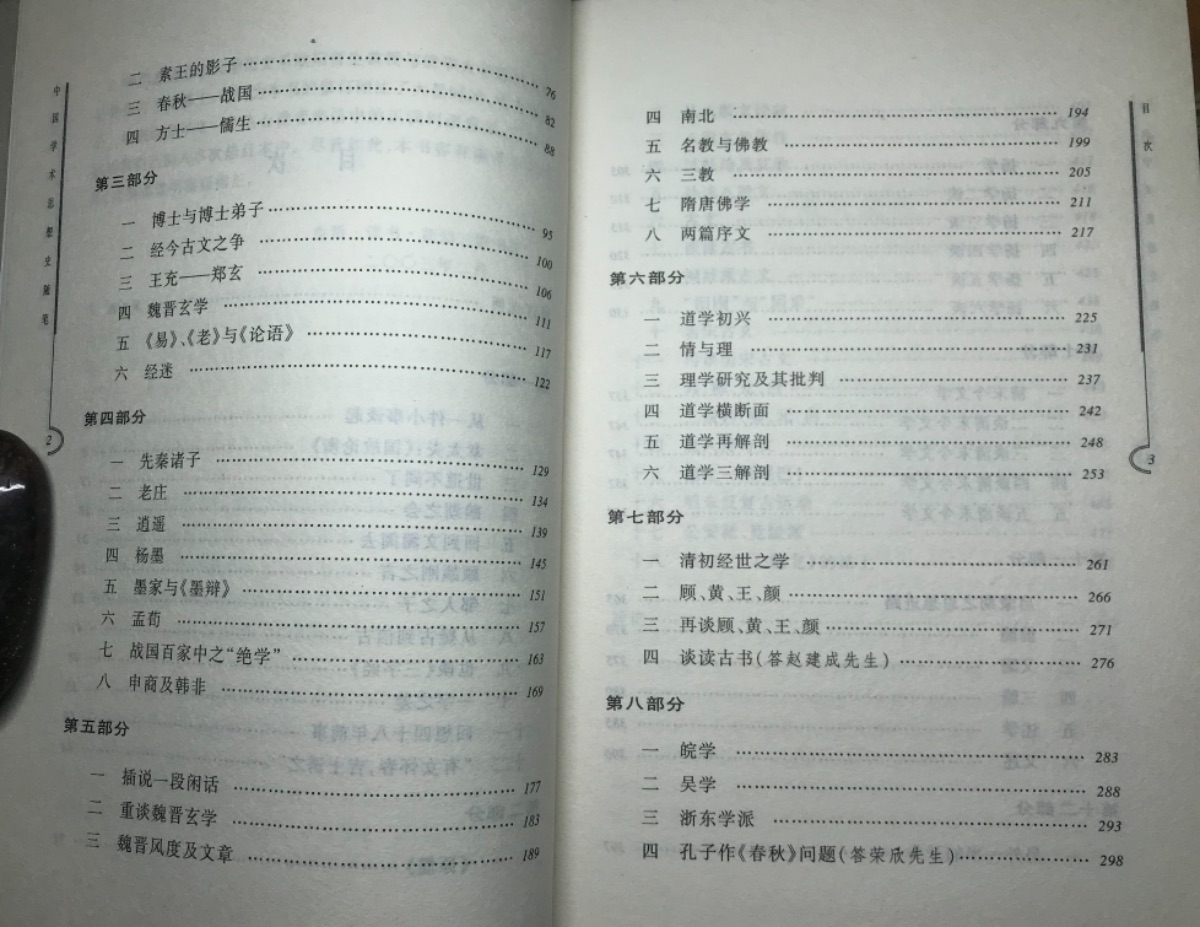 中国学术思想史随笔
二 素王的影子 …… 76
三 春秋——战国 …… 82
四 方士——儒生 …… 88
第三部分
一 博士与博士弟子 …… 95
二 经今古文之争 …… 100
三 王充——郑玄 …… 106
四 魏晋玄学 …… 111
五 《易》、《老》与《论语》 …… 117
六 经迷 …… 122
第四部分
一 先秦诸子 …… 129
二 老庄 …… 134
三 逍遥 …… 139
四 杨墨 …… 145
五 墨家与《墨辩》 …… 151
六 孟荀 …… 157
七 战国百家中之“绝学” …… 163
八 申商及韩非 …… 169
第五部分
一 插说一段闲话 …… 177
二 重谈魏晋玄学 …… 183
三 魏晋风度及文章 …… 189
2
目次
四 南北 …… 194
五 名教与佛教 …… 199
六 三教 …… 205
七 隋唐佛学 …… 211
八 两篇序文 …… 217
第六部分
一 道学初兴 …… 225
二 情与理 …… 231
三 理学研究及其批判 …… 237
四 道学横断面 …… 242
五 道学再解剖 …… 248
六 道学三解剖 …… 253
第七部分
一 清初经世之学 …… 261
二 顾、黄、王、颜 …… 266
三 再谈顾、黄、王、颜 …… 271
四 谈读古书(答赵建成先生) …… 276
第八部分
一 皖学 …… 283
二 吴学 …… 288
三 浙东学派 …… 293
四 孔子作《春秋》问题(答荣欣先生) …… 298
3